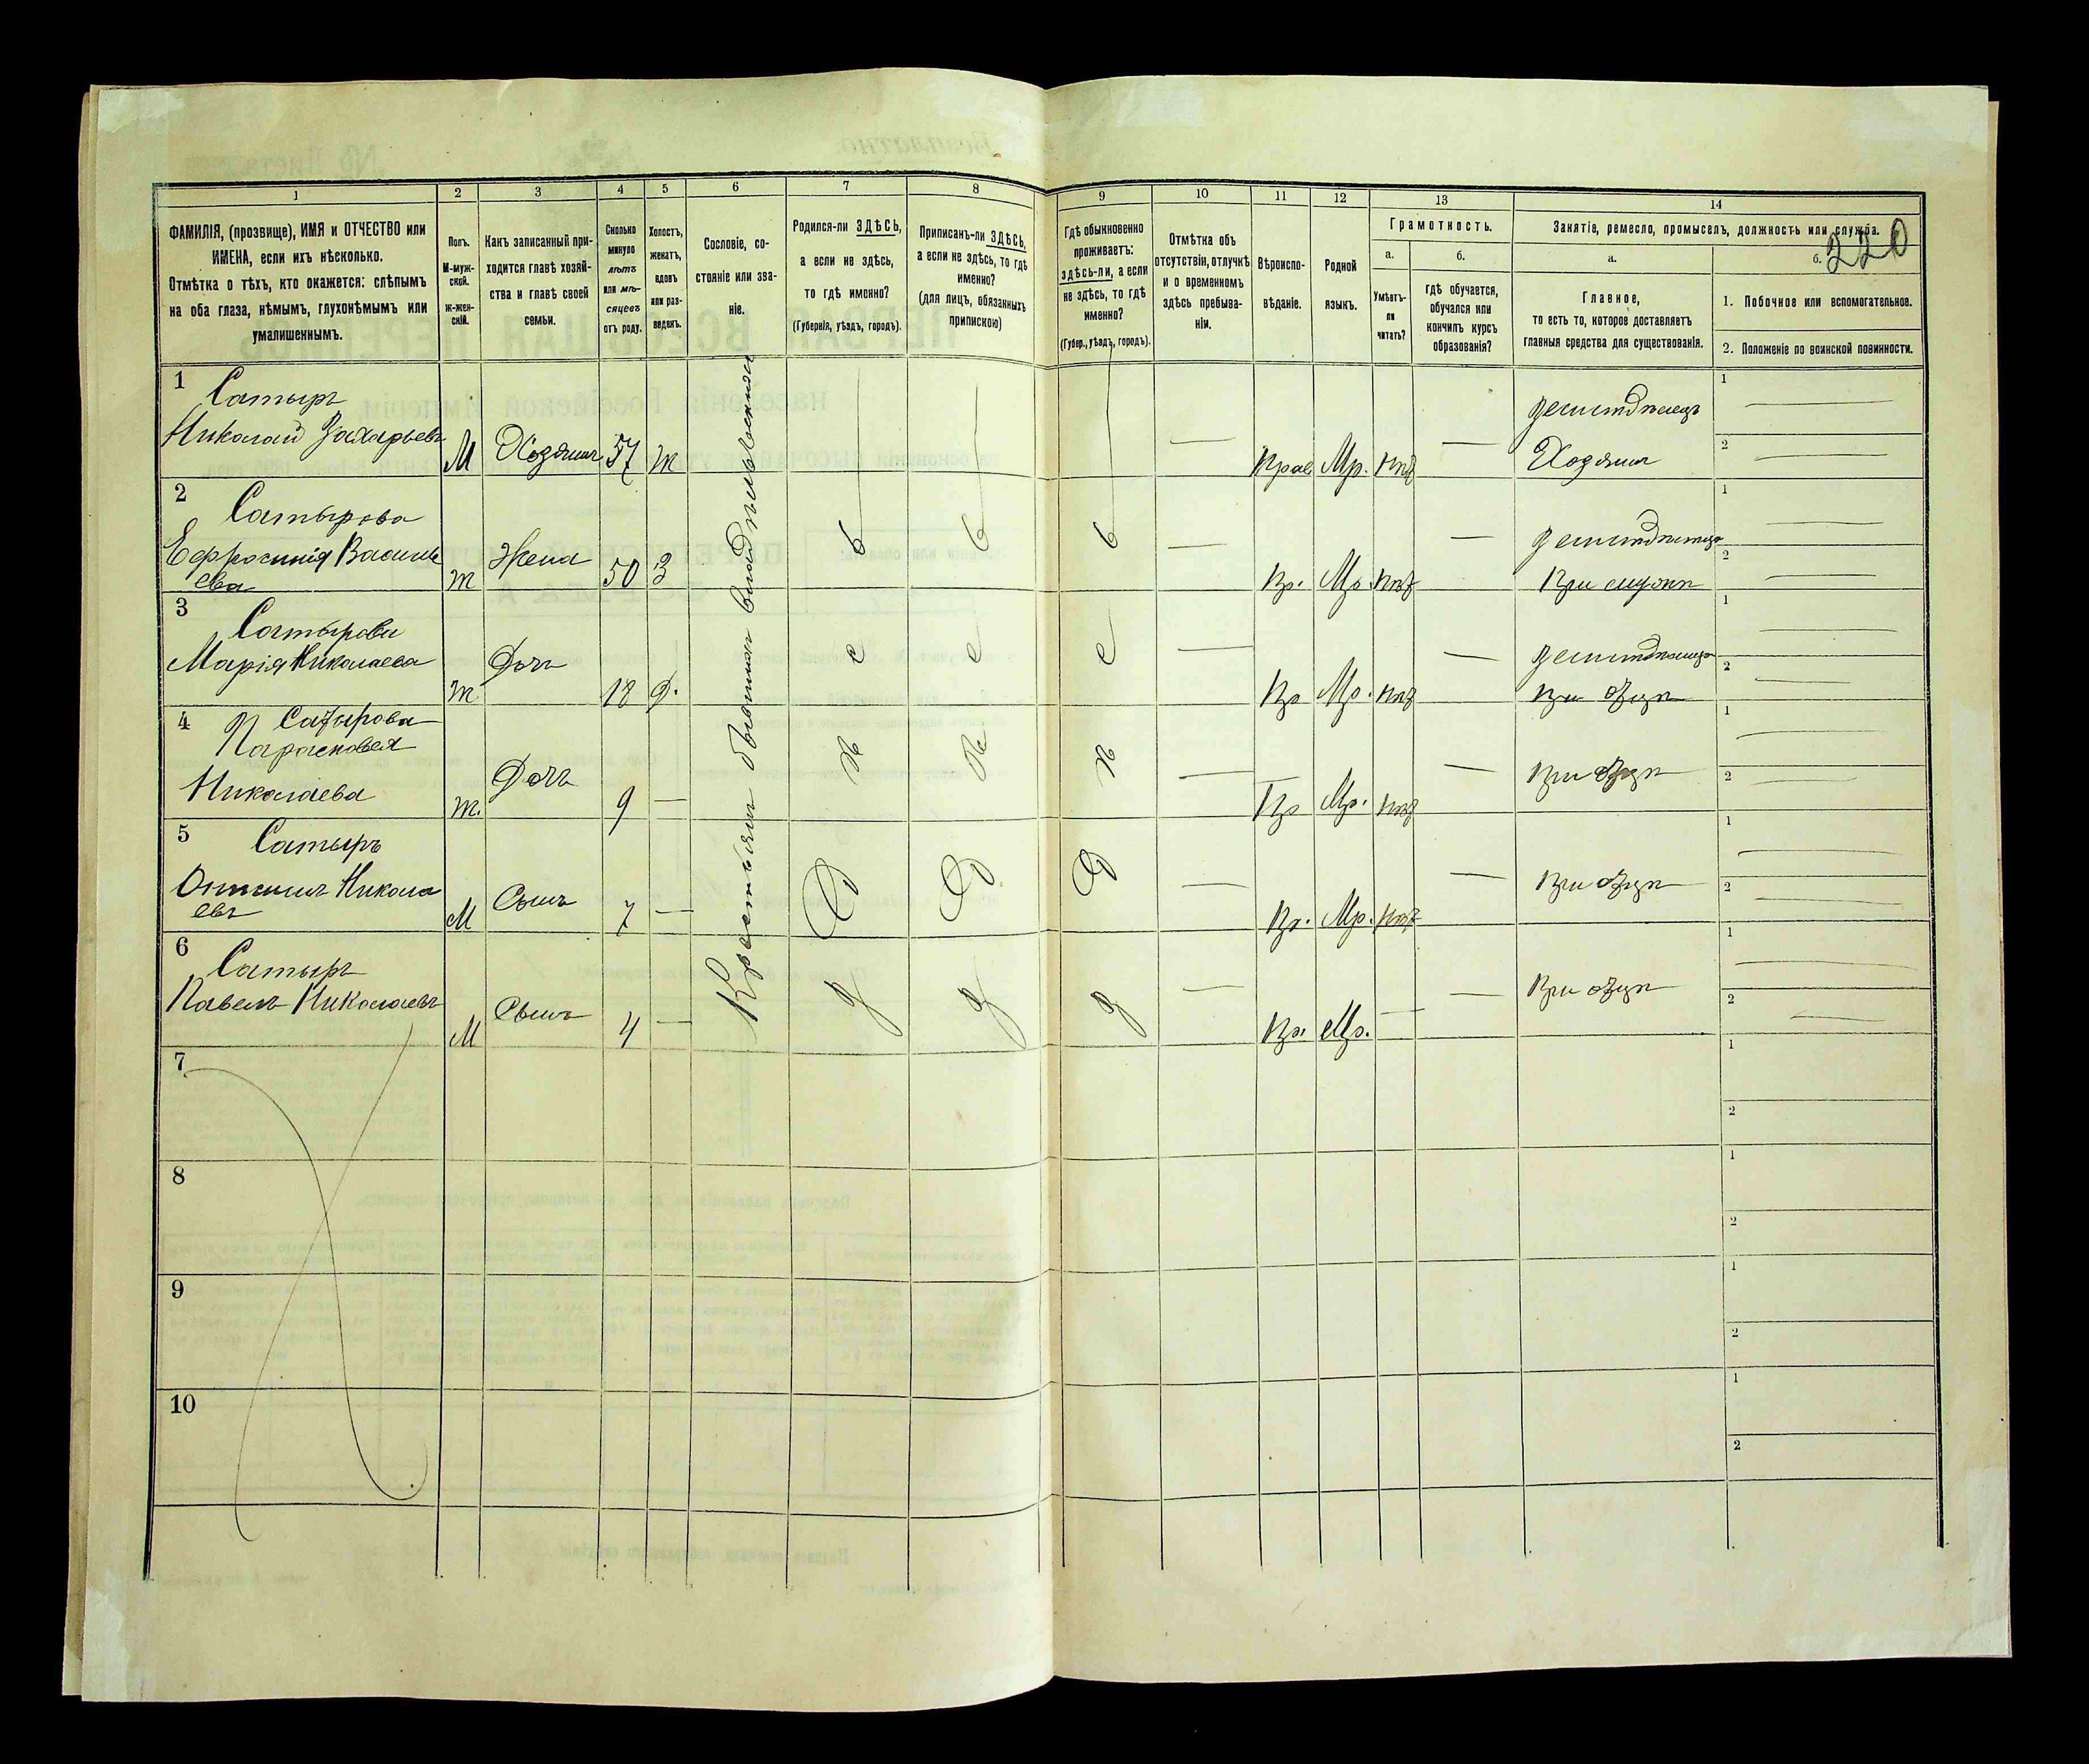 1 2 3 4 5 6 7 8 9 10 11 12 13 14
ФАМИЛІЯ, (прозвище), ИМЯ и ОТЧЕСТВО или
ИМЕНА, если ихъ нѣсколько.
Отмѣтка о тѣхъ, кто окажется: слѣпымъ
на оба глаза, нѣмымъ, глухонѣмымъ или
умалишеннымъ.
Полъ.
М-муж-
ской.
ж-жен-
скій.
Какъ записанный при-
ходится главѣ хозяй-
ства и главѣ своей
семьи.
Сколько
минуло
лѣтъ
или мѣ-
сяцевъ
отъ роду.
Холостъ,
женатъ,
вдовъ
или раз-
веденъ.
Сословіе, со-
стояніе или зва-
ніе.
Родился-ли ЗДѢСЬ,
а если не здѣсь,
то гдѣ именно?
(Губернія, уѣздъ, городъ).
Приписанъ-ли ЗДѢСЬ,
а если не здѣсь, то гдѣ
именно?
(для лицъ, обязанныхъ
припискою)
Гдѣ обыкновенно
проживаетъ:
здѣсь-ли, а если
не здѣсь, то гдѣ
именно?
(Губер., уѣздъ, городъ).
Отмѣтка объ
отсутствіи, отлучкѣ
и о временномъ
здѣсь пребыва-
ніи.
Вѣроиспо-
вѣданіе.
Родной
языкъ.
Грамотность.
а.
Умѣетъ-
ли
читать?
б.
Гдѣ обучается,
обучался или
кончилъ курсъ
образованія?
Занятіе, ремесло, промыселъ, должность или служба.
220
а.
Главное,
то есть то, которое доставляетъ
главныя средства для существованія.
б.
1. Побочное или вспомогательное.
2. Положеніе по воинской повинности.
Крестьяни бывшии владѣльческии
Здѣсь Здѣсь Здѣсь
1
Сатыръ
Николай Захарьевъ М Хозяинъ 57 Ж — Прав Мр. нѣт —
земледѣлецъ
Хозяинъ
1 —
2 —
2
Сатырова
Ефросинія Василье
ева Ж Жена 50 З — Пр. Мр. нѣт —
земледѣлица
При мужѣ
1 —
2 —
3
Сатырова
Марія Николаева Ж Дочь 18 Д. — Пр Мр. нѣт —
земледѣлица
При отцѣ
1 —
2 —
4
Сатырова
Парасковея
Николаева Ж. Дочь 9 — — Пр Мр. нѣт —
При отцѣ
1 —
2 —
5
Сатыръ
Николa
евъ М Сынъ 7 — — Пр. Мр. нѣт —
При отцѣ
1 —
2 —
6
Сатыръ
Павелъ Николаевъ М Сынъ 4 — — Пр. Мр. — —
При отцѣ
1 —
2 —
7
1
2
8
1
2
9
1
2
10
1
2